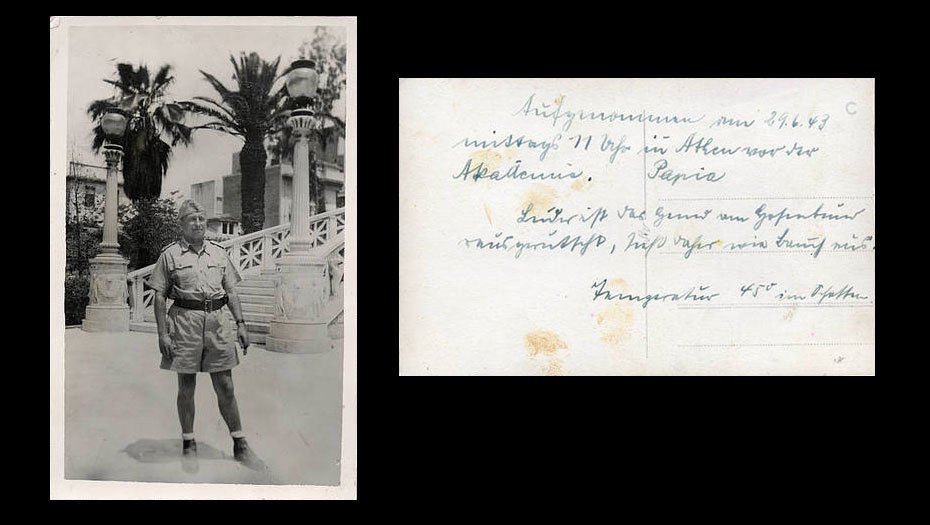 C
Aufgenommen am 29.6.43
mittags 11 Uhr in Athen vor der
Akademie. Papia
Leider ist das Hemd am Hosenbund
rausgerutscht, sieht daher wie Bauch aus.
Temperatur 45° im Schatten.